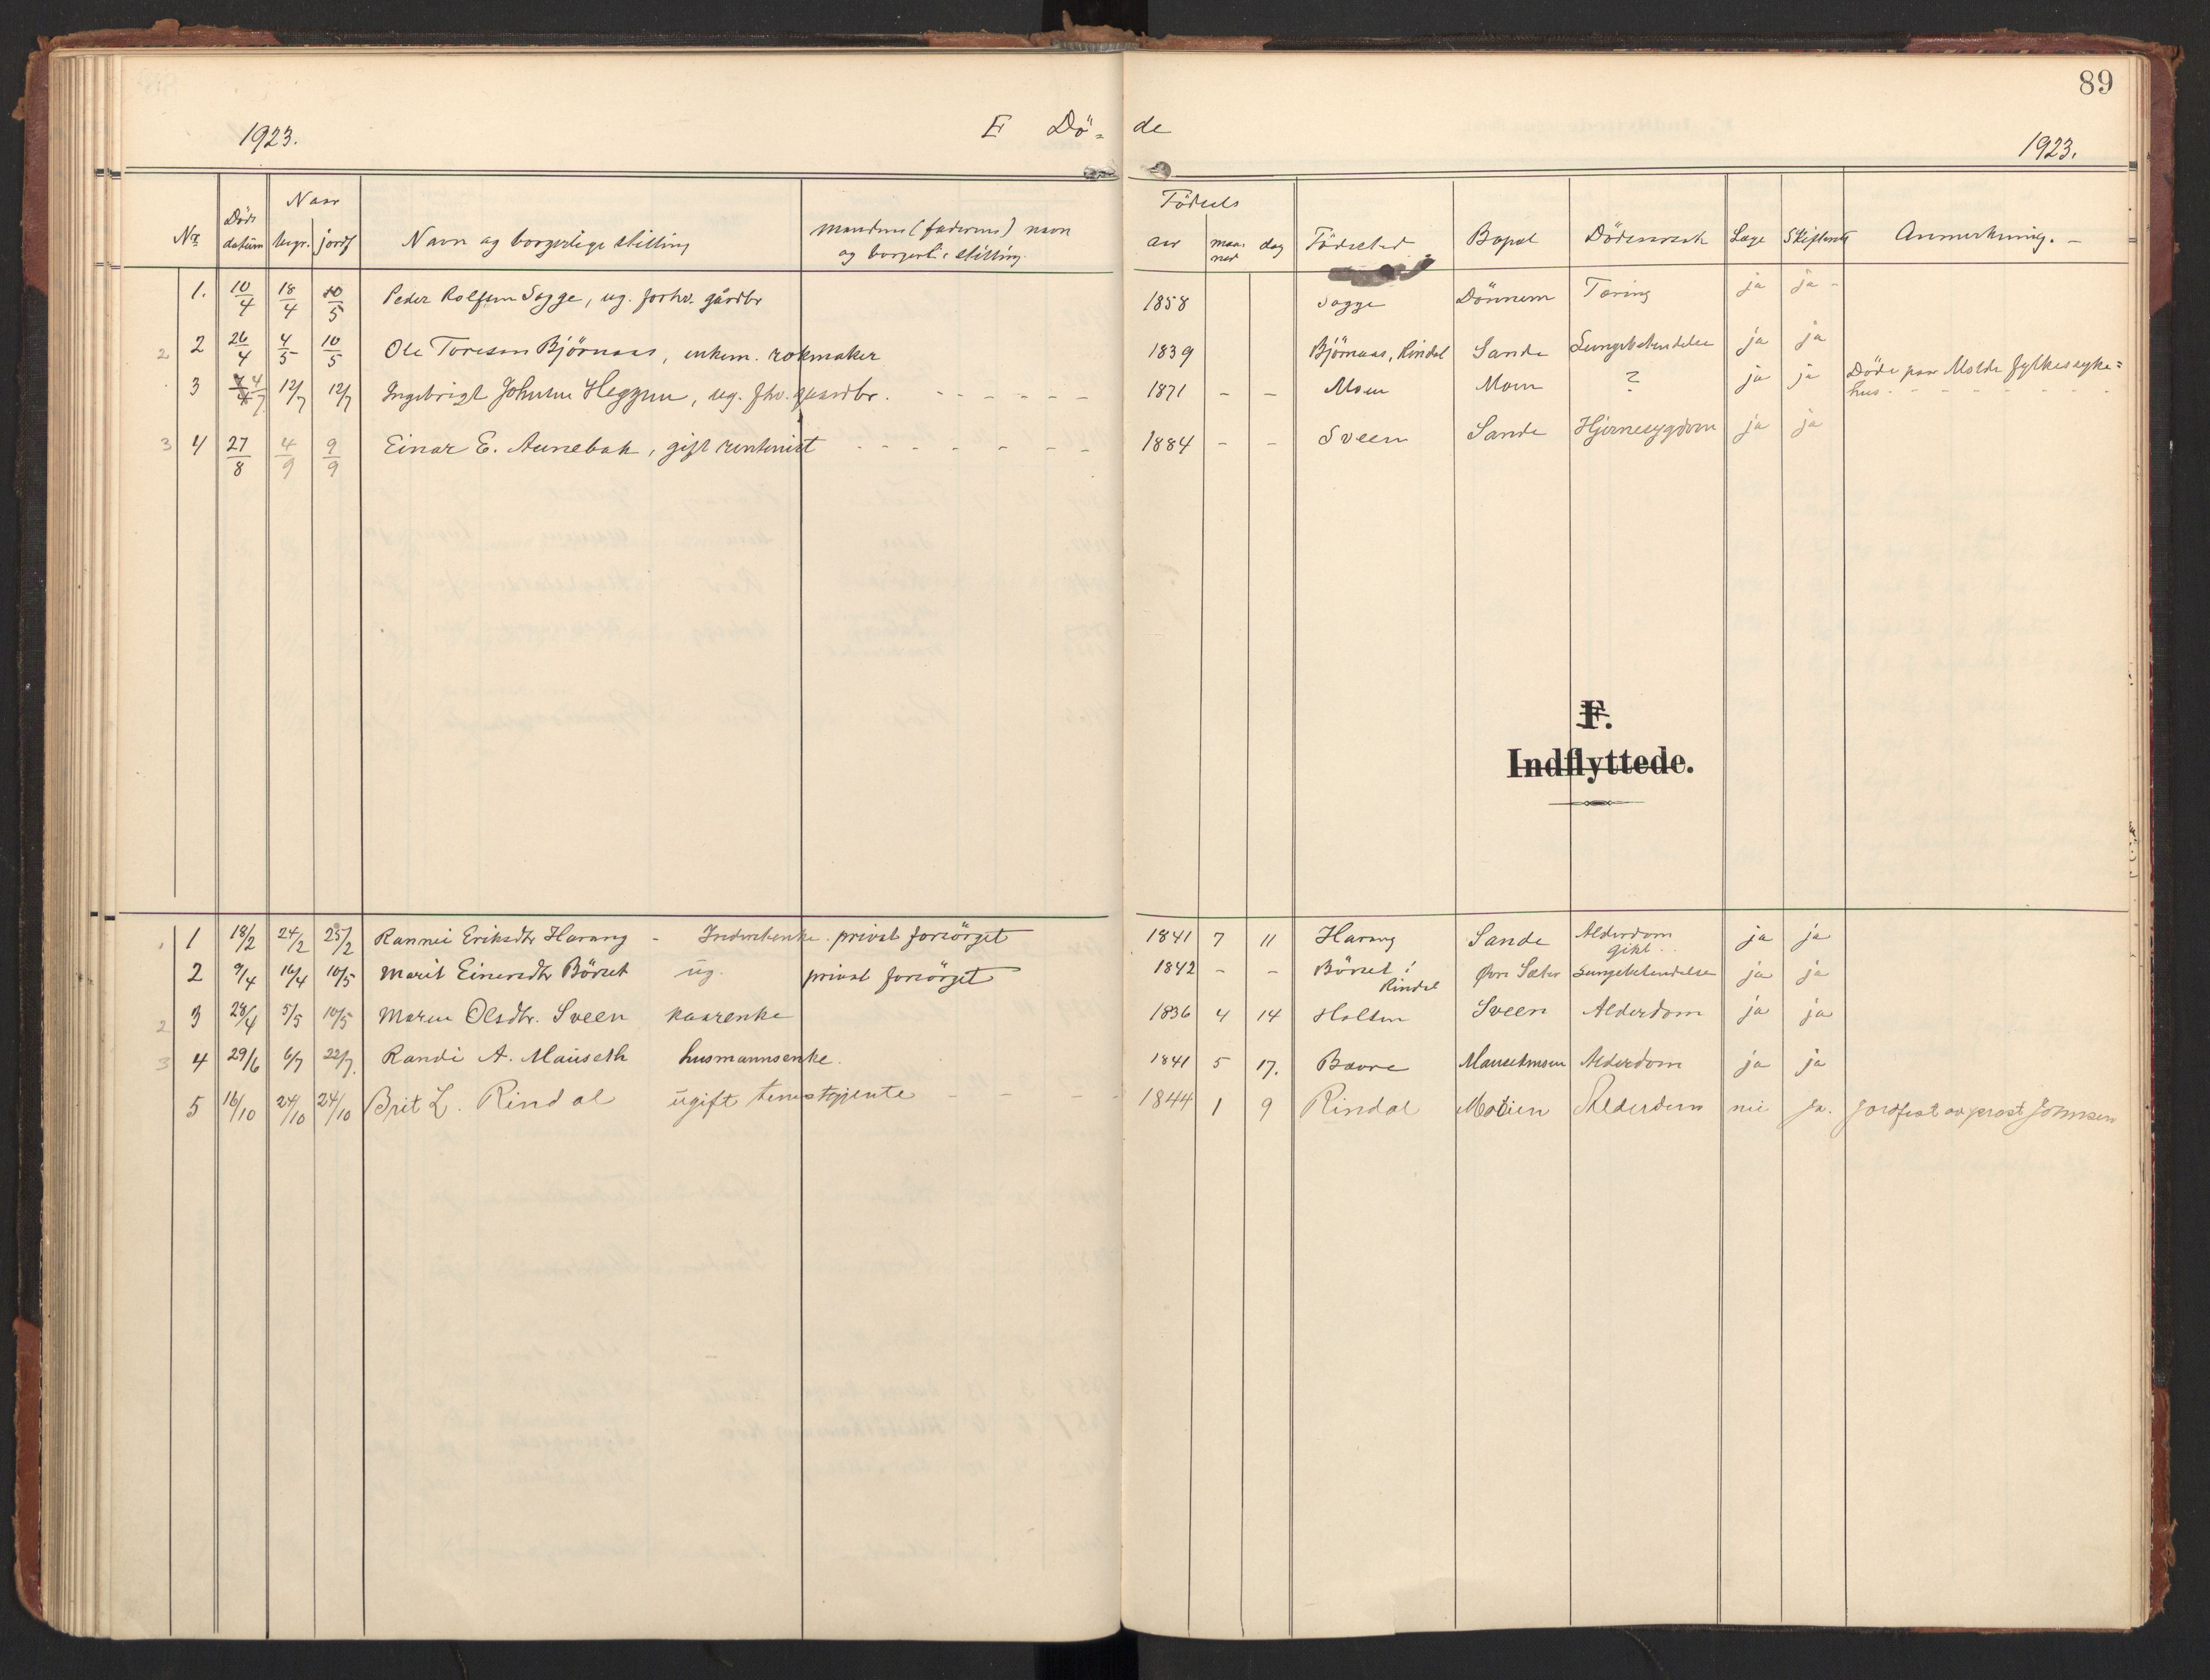 89
1923. E Dö- de 1923.
Nr Døds datum Naar begr. jordf Navn og borgerlige stilling mandens (faderens) navn og borgerl. stilling Födsels aar maaned dag Födested Bopæl Dödsaarsak Læge Skifteret Anmerkning. -
1. 10/4 18/4 10/5 Peder Rolfsen Sogge, ug. forhv. gårdbr 1858 Sogge Dönnem Tæring ja ja -
2 2 26/4 4/5 10/5 Ole Toresen Björnaas, enkem. rokmaker 1839 Björnaas, Rindal Sande Lungebetendelse ja ja
3 4/7 12/7 12/7 Ingebrigt Johnsen Heggem, ug. fhv. gaardbr. - - - - - - 1871 - - Moen Moen ? ja ja Döde paa Molde fylkessyke=
hus - - - - - -
3 4 27/8 4/9 9/9 Einar E. Aunebak, gift rentenist - - - - - - - 1884 - - Sveen Sande Hjernesygdom ja ja
F.
Indflyttede.
1 1 18/2 24/2 25/2 Rannei Eriksdtr Harang - Inderstenke privat forsörget 1841 7 11 Harang Sande Alderdom gikt ja ja
2 9/4 16/4 10/5 Marit Einersdtr Börset ug. privat forsörget 1842 - - Börset i Rindal Øvre Sæter Lungebetendelse ja ja
2 3 28/4 5/5 10/5 Maren Olsdtr. Sveen kaarenke 1836 4 14 Holten Sveen Alderdom ja ja
3 4 29/6 6/7 22/7. Randi A. Mauseth husmannsenke. 1841 5 17. Bævre Mausethmoen Alderdom ja ja
5 16/10 24/10 24/10 Brit L. Rindal ugift tenestgjente - - - - 1844 1 9 Rindal Moen Alderdom nei ja. Jordfest av prost Johnsen